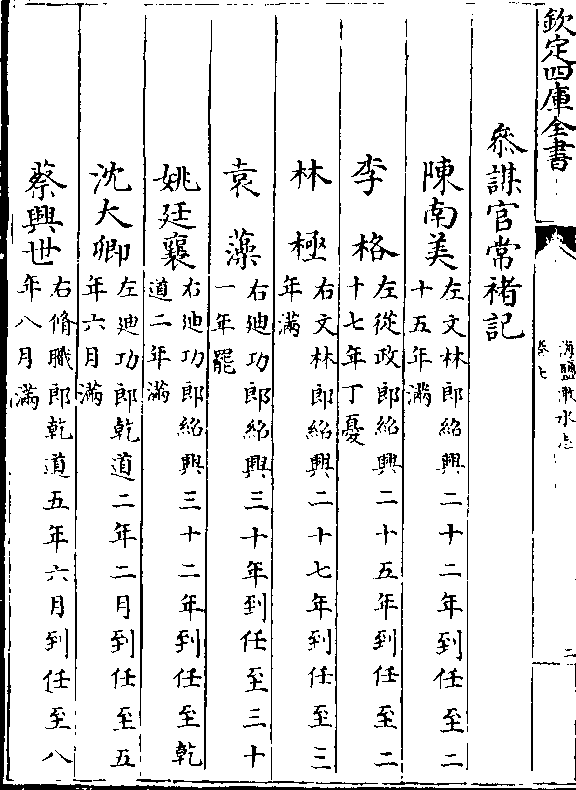 欽定四庫全書
海鹽澉水志
卷七
二
叅謀官常褚記
陳南美左文林郎紹興二十二年到任至二
十五年滿
李格左從政郎紹興二十五年到任至二
十七年丁憂
林極右文林郎紹興二十七年到任至三
年滿
袁藻右廸功郎紹興三十年到任至三十
一年罷
姚廷襄右廸功郎紹興三十二年到任至乾
道二年滿
沈大卿左廸功郎乾道二年二月到任至五
年六月滿
蔡興世右脩職郎乾道五年六月到任至八
年八月滿